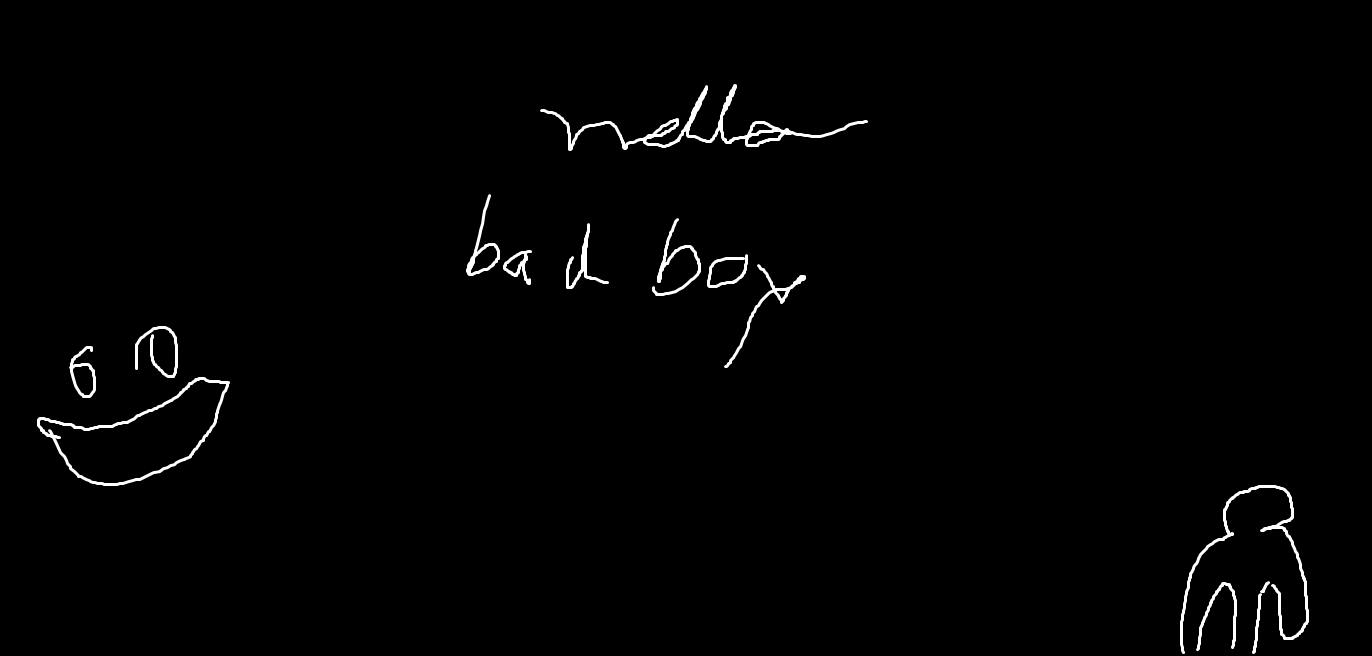 nello
bad boy